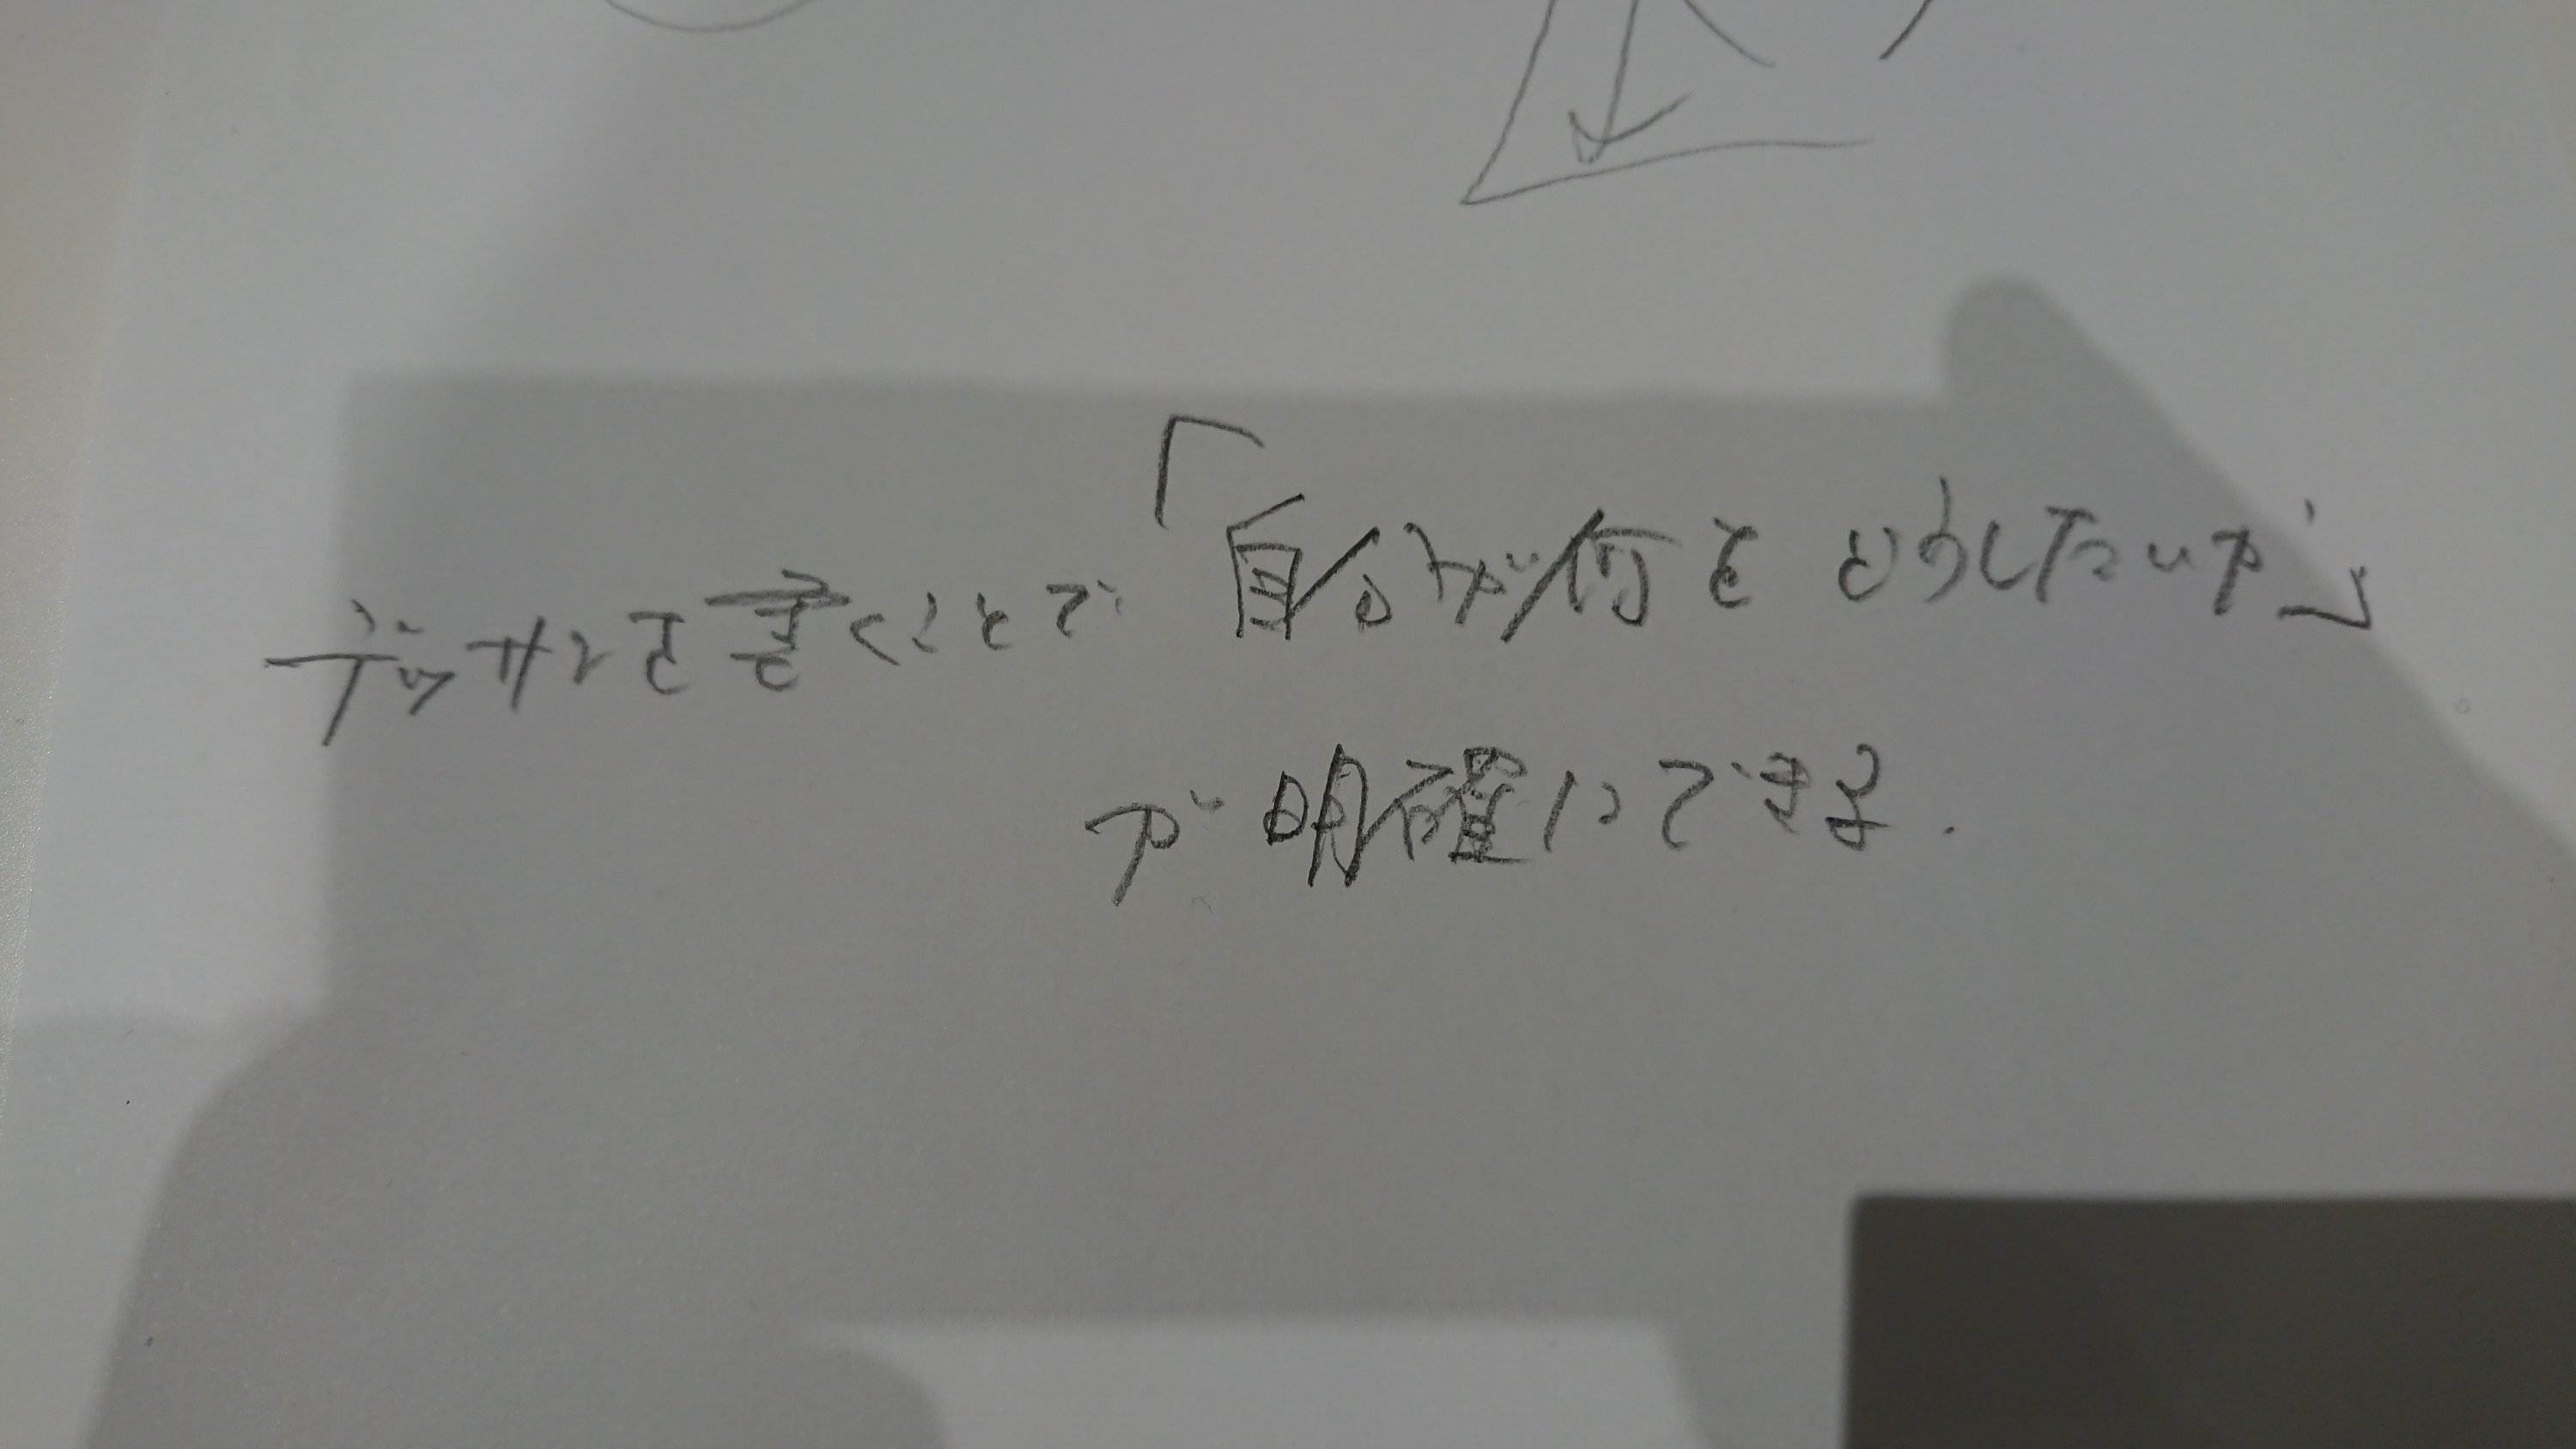 デッサンを書くことで「自分が何をどうしたいか」
が明確にできる.